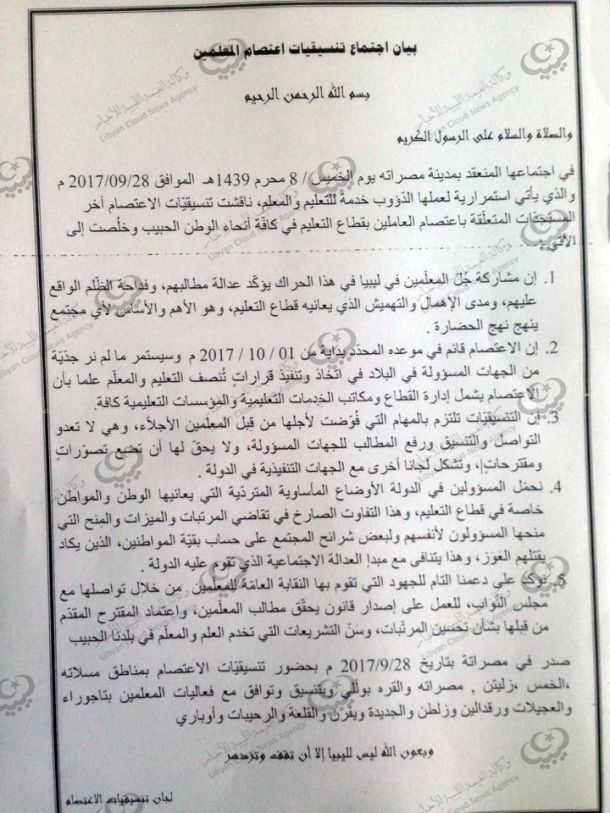 بيان اجتماع تنسيقيات اعتصام المعلمين
بسم الله الرحمن الرحيم
والصلاة والسلام على الرسول الكريم
في اجتماعها المنعقد بمدينة مصراته يوم الخميس/ 8 محرم 1439هـ الموافق 2017/09/28 م
والذي يأتي استمرارية لعملها الدؤوب خدمةً للتعليم والمعلم، ناقشت تنسيقيّات الاعتصام آخر
المستجدات المتعلّقة باعتصام العاملين بقطاع التعليم في كافّة أنحاء الوطن الحبيب وخلُصت إلى
الآتي:
1. إن مشاركة جُل المعلّمين في ليبيا في هذا الحراك يؤكّد عدالة مطالبهم، وفداحة الظّلم الواقع
عليهم، ومدى الإهمال والتهميش الذي يعانيه قطاع التعليم، وهو الأهم والأساس لأي مجتمع
ينهج نهج الحضارة .
2. إن الاعتصام قائم في موعده المحدّد بداية من 01 / 10 / 2017 م وسيستمر ما لم نر جدّيّة
من الجهات المسؤولة في البلاد في اتخاذ وتنفيذ قرارات تُنصف التعليم والمعلّم علما بأن
الاعتصام يشمل إدارة القطاع ومكاتب الخدمات التعليمية والمؤسسات التعليمية كافة.
3. إن التنسيقيّات تلتزم بالمهام التي فُوّضت لأجلها من قِبل المعلمين الأجلاّء، وهي لا تعدو
التواصل والتنسيق ورفع المطالب للجهات المسؤولة، ولا يحق لها أن تضع تصوّرات
ومقترحات، وتشكل لجانا أخرى مع الجهات التنفيذية في الدولة .
4. نحمّل المسؤولين في الدولة الأوضاع المأساوية المتردّية التي يعانيها الوطن والمواطن
خاصة في قطاع التعليم، وهذا التفاوت الصارخ في تقاضي المرتبات والميزات والمنح التي
منحها المسؤولون لأنفسهم ولبعض شرائح المجتمع على حساب بقيّة المواطنين، الذين يكاد
يقتلهم العَوَز، وهذا يتنافى مع مبدإ العدالة الاجتماعية الذي تقوم عليه الدولة .
5. نؤكد على دعمنا التام للجهود التي تقوم بها النقابة العامّة للمعلمين من خلال تواصلها مع
مجلس النّواب، للعمل على إصدار قانون يحقّق مطالب المعلّمين، واعتماد المقترح المقدّم
من قِبلها بشأن تحسين المرتّبات، وسَنّ التشريعات التي تخدم العلم والمعلّم في بلدنا الحبيب
صدر في مصراتة بتاريخ 2017/9/28 م بحضور تنسيقيّات الاعتصام بمناطق مسلاته
،الخمس ،زليتن , مصراته والقره بوللي وبتنسيق وتوافق مع فعاليات المعلمين بتاجوراء
والعجيلات ورقدالين وزلطن والجديدة ويفرن والقلعة والرحيبات وأوباري
وبعون الله ليس لليبيا إلا أن تقف وتزدهر
لجان تنسيقيات الاعتصام
وكالة الغيمة الليبية للأخبار
Libyan Cloud News Agency